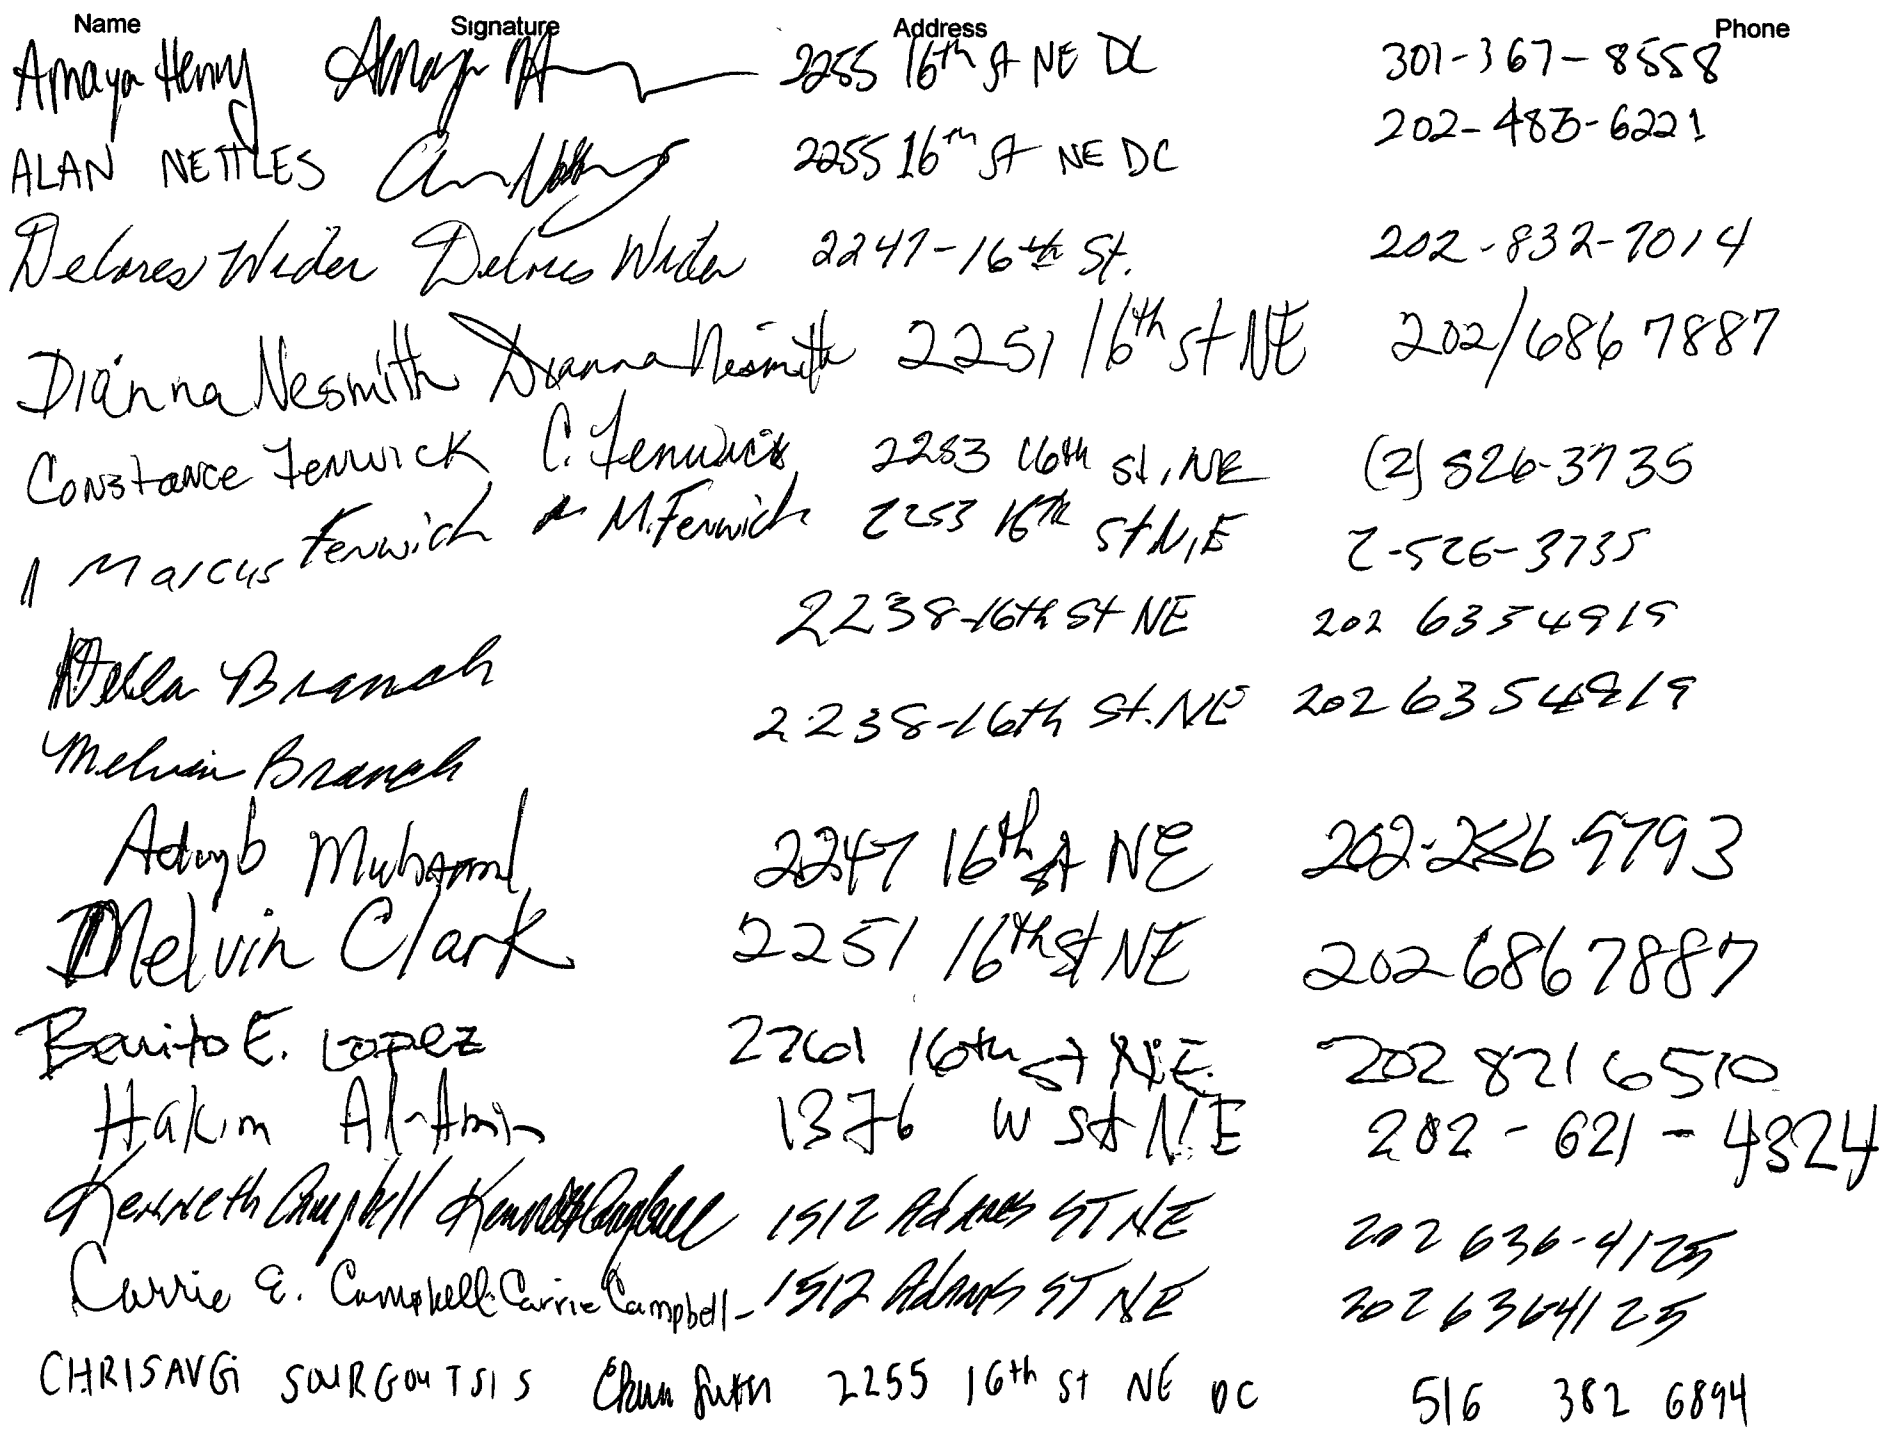 Name Signature Address Phone
Amaya Henry Amaya H 2255 16th St NE DC 301-367-8558
ALAN NETTLES 2255 16th St NE DC 202-483-6221
Delores Wider Delores Wider 2247-16th St. 202-832-7014
Dianna Nesmith Dianna Nesmith 2251 16th St NE 202/686 7887
Constance Fenwick C. Fenwick 2253 16th St, NE (2) 526-3735
Marcus Fenwick M. Fenwick 2253 16th St N,E 2-526-3735
Della Branch 2238-16th St NE 202 635 4919
Melvin Branch 2238-16th St. NE 202 635 4919
2247 16th St NE 202-286-9793
Melvin Clark 2251 16th St NE 202 686 7887
Benito E. Lopez 2261 16th St N.E. 202 821 6510
Hakim Al-Amin 1376 W St N.E 202-621-4324
Kenneth Campbell Kenneth Campbell 1512 Adams ST NE 202 636-4125
Carrie E. Campbell Carrie Campbell 1512 Adams ST NE 202 636 4125
CHRISAVGI SOURGOUTSIS 2255 16th St NE DC 516 382 6894